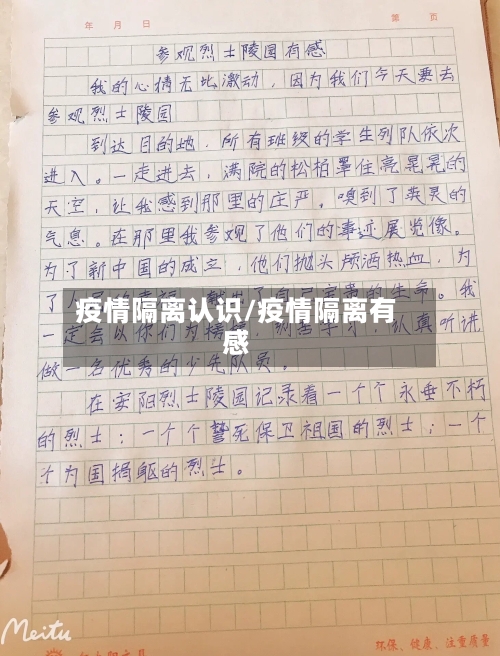 年 月 日
第 页
参观烈士陵园有感
我的心情无比激动，因为我们今天要去
参观烈士陵园
到达目的地，所有班级的学生列队依次
进入。一走进去，满院的松柏罩住亮晃晃的
天空，让我感到那里的庄严。嗅到了英灵的
气息。在那里我参观了他们的事迹展览像。
为了新中国的成立，他们抛头颅洒热血，为
了人民的幸福 宝贵的生命。我
疫情隔离认识/疫情隔离有
感
一定会以你们为榜样 认真听讲
做一名优秀的少先队员。
在安阳烈士陵园记录着一个个永垂不朽
的烈士；一个个誓死保卫祖国的烈士；一个
个为国捐躯的烈士。
Meitu
环保、健康、注重质量